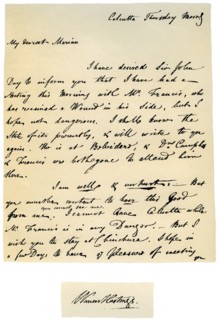 Calcutta Thursday Morng
My dearest Marian
I have desired Sir John
Day to inform you that I have had a
Meeting this Morning with Mr. Francis, who
has received a Wound in his side, but I
hope not dangerous. I shall know the
State of it presently, & will write to you
again. He is at Belvidere, & Drs. Campbell
& Francis are both gone to attend him
there.
I am well & unhurt. - But
you must be content to hear this Good
from me. You must not see me. I cannot leave Calcutta while
Mr Francis is in any Danger. - But I
wish you to stay at Chinchura. I hope in
a few Days to have ye pleasure of meeting
you
Warren Hastings.